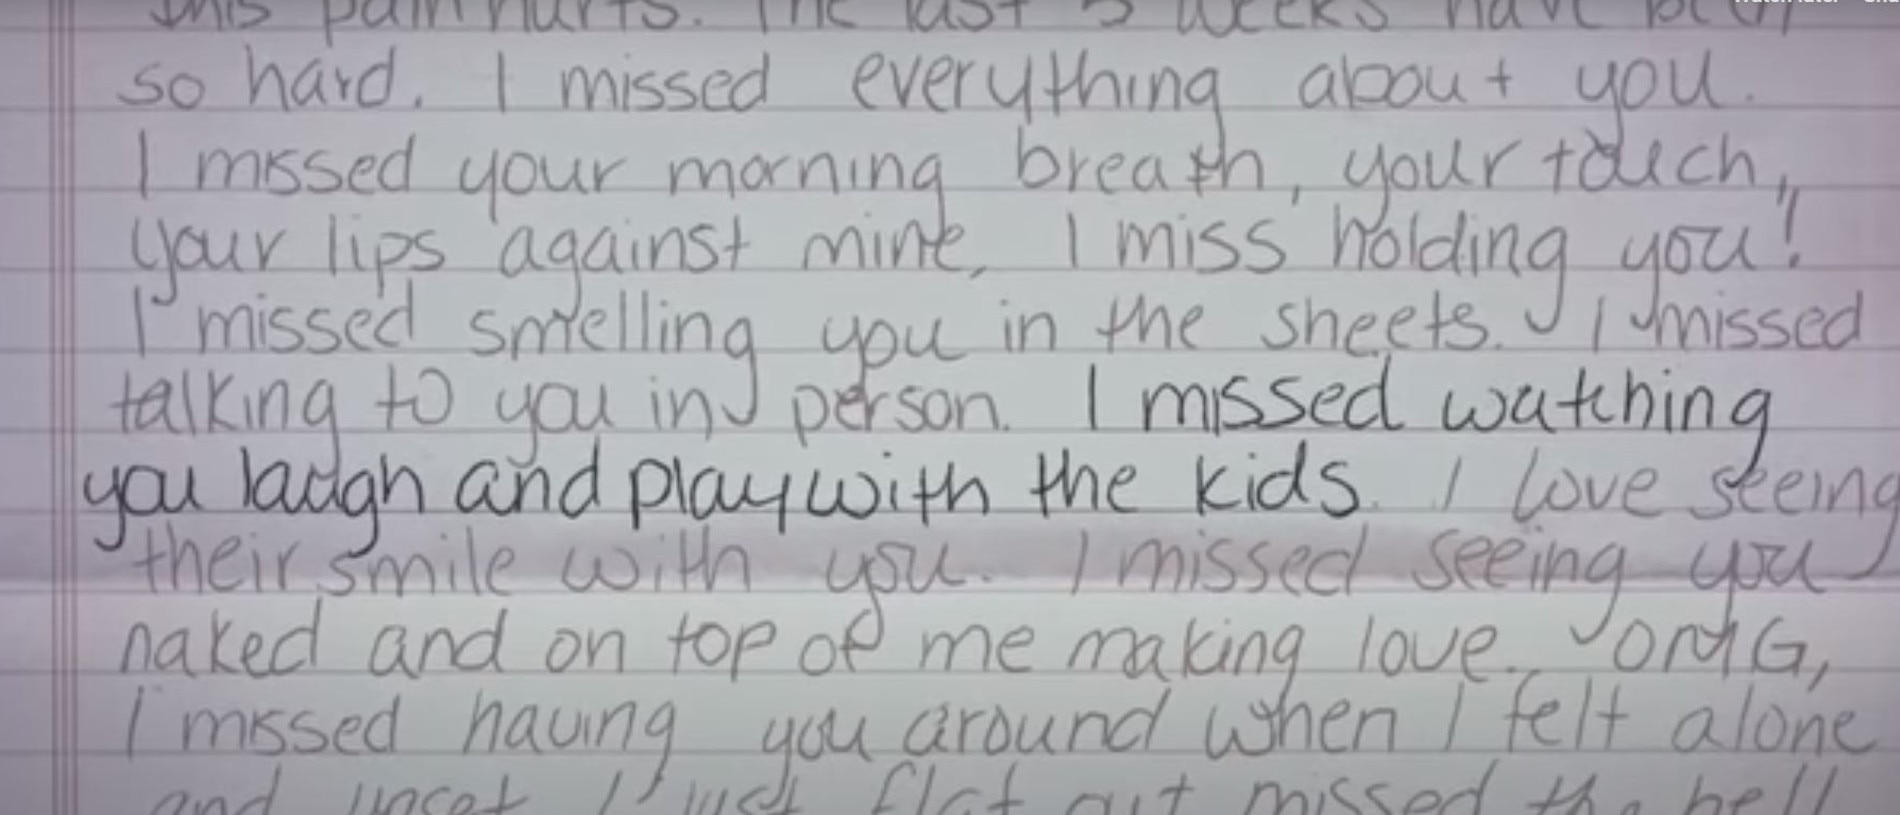 this pain hurts. The last 5 weeks have been
so hard. I missed everything about you.
I missed your morning breath, your touch,
your lips against mine, I miss holding you!
I missed smelling you in the sheets. I missed
talking to you in person. I missed watching
you laugh and play with the kids. I love seeing
their smile with you. I missed seeing you
naked and on top of me making love. OMG,
I missed having you around when I felt alone
and upset I just flat out missed the hell